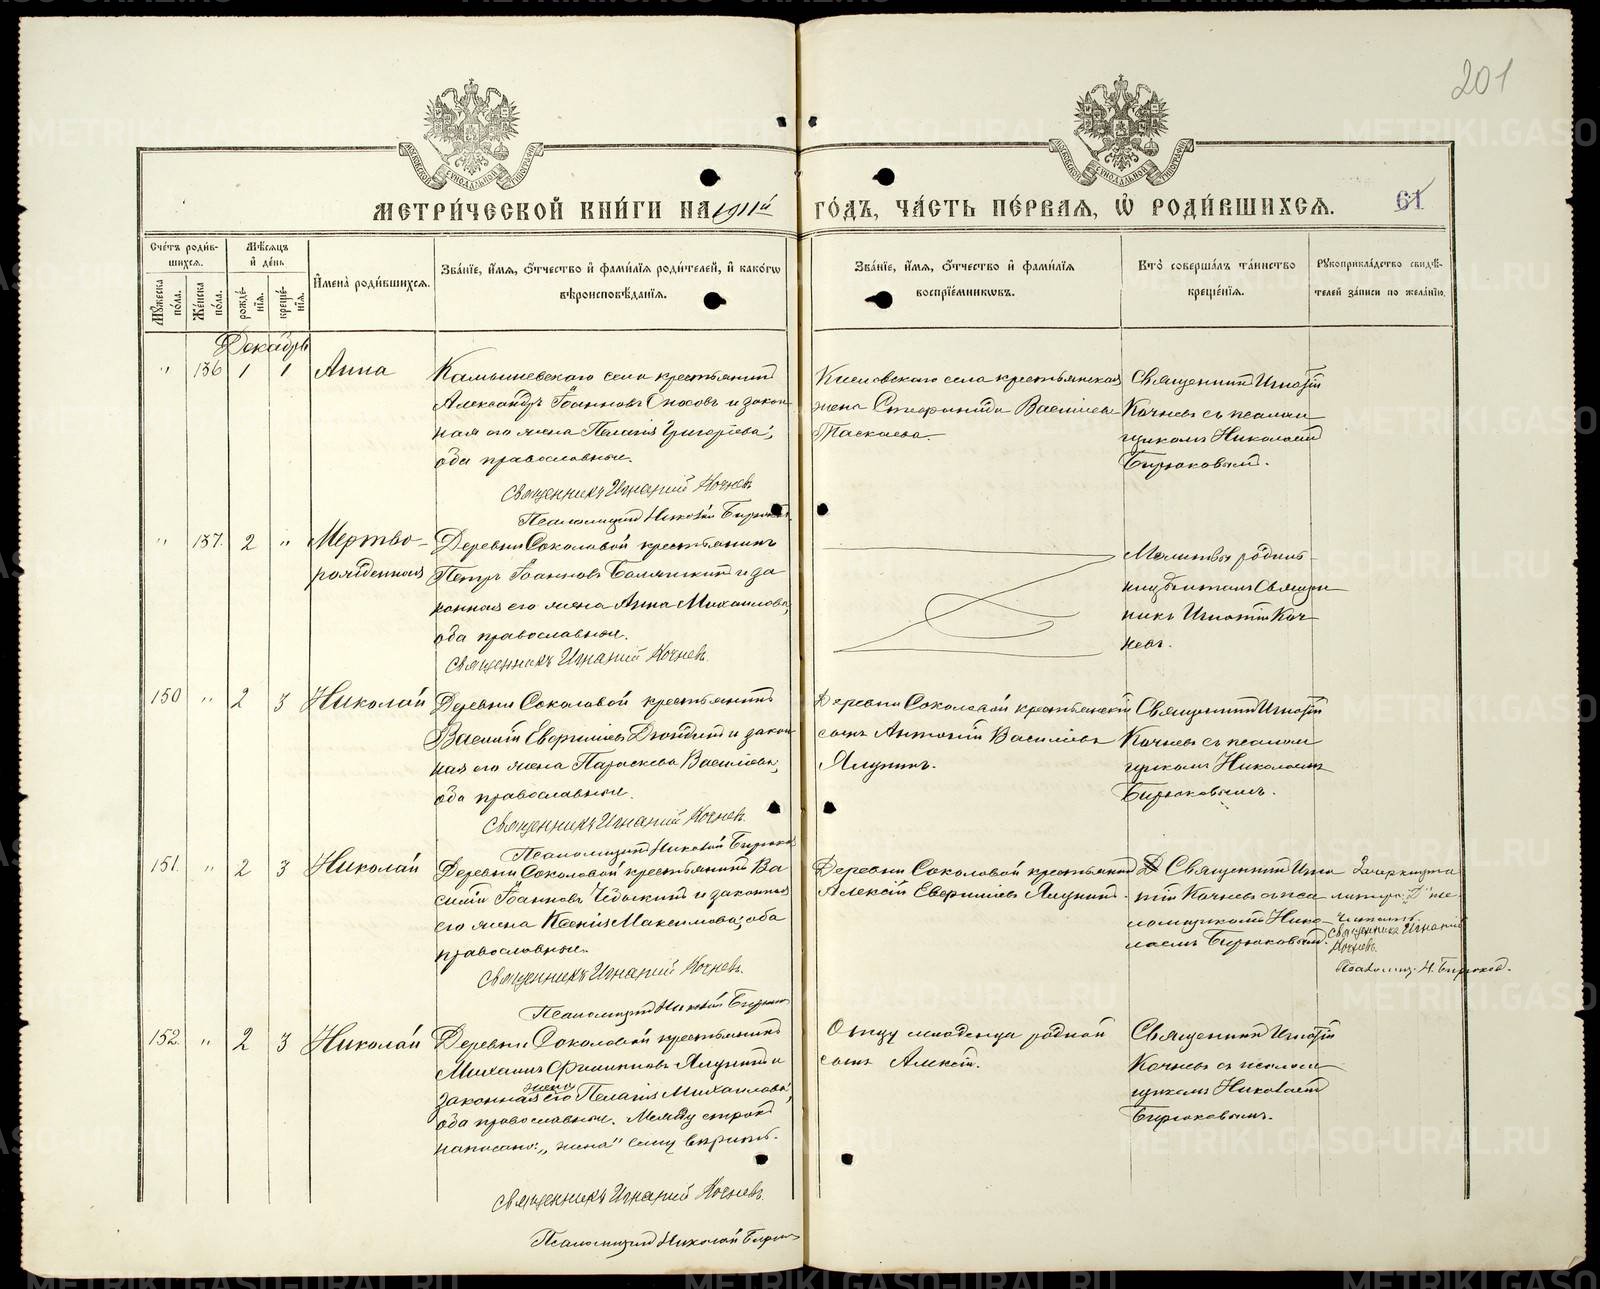 201
МЕТРИ́ЧЕСКОЙ КНИ́ГИ НА 1911й ГО́ДЪ, ЧА́СТЬ ПЕ́РВАЯ, Ѡ҆ РОДИ́ВШИХСЯ.
61
Сче́тъ роди́вшихся.
Мѣ́сяцъ и҆ де́нь
Му́жеска по́ла.
Же́нска по́ла.
рожде́нїя.
креще́нїя.
И҆мена̀ роди́вшихся.
Зва́нїе, и҆́мя, ѻ҆́тчество и҆ фами́лїя роди́телей, и҆ како́гѡ
вѣроисповѣ́данїя.
Зва́нїе, и҆́мя, ѻ҆́тчество и҆ фами́лїя
воспрїе́мникѡвъ.
Кто̀ соверша́лъ та́инство
креще́нїя.
Рꙋкоприкла́дство свидѣ́-
телей за́писи по жела́нїю.
Декабрь
" 136 1 1 Анна
Камышевскаго села крестьянинъ
Александръ Іоанновъ и закон-
ная его жена Пелагія Григорьева,
оба православные.
Священникъ Игнатій Кочневъ
Псаломщикъ Николай Бирюковъ
Кисловскаго села крестьянская
жена Стефанида Васильева
Таскаева.
Священникъ Игнатій
Кочневъ съ псалом
щикомъ Николаемъ
Бирюковымъ.
" 137. 2 " Мертво-
рожденная
Деревни Соколовой крестьянинъ
Петръ Іоанновъ и за
конная его жена Анна Михаилова,
оба православные.
Священникъ Игнатій Кочневъ.
Молитвы родиль-
ницѣ читалъ Священ
никъ Игнатій Коч-
невъ.
150 " 2 3 Николай
Деревни Соколовой крестьянинъ
Василій и закон
ная его жена Параскева Васильева,
оба православные.
Священникъ Игнатій Кочневъ.
Псаломщикъ Николай Бирюков
Деревни Соколовой крестьянскій
сынъ Антоній Васильевъ
Ялунинъ.
Священникъ Игнатій
Кочневъ съ псалом
щикомъ Николаемъ
Бирюковымъ.
151. " 2 3 Николай
Деревни Соколовой крестьянинъ Ва
силій Іоанновъ и законная
его жена Ксенія Максимова, оба
православные.
Священникъ Игнатій Кочневъ.
Псаломщикъ Николай Бирюков
Деревни Соколовой крестьянинъ
Алексій Ялунинъ.
Д Священникъ Игна
тій Кочневъ съ пса
ломщикомъ Нико-
лаемъ Бирюковымъ.
Зачеркнута
литера "Д" не
читать.
Священникъ Игнатій
Кочневъ.
Псаломщ. Н. Бирюков.
152. " 2 3 Николай
Деревни Соколовой крестьянинъ
Михаилъ Филипповъ Ялунинъ и
жена
законная его Пелагія Михаилова,
оба православные. Между строкъ
написано: "жена" сему вѣрить.
Священникъ Игнатій Кочневъ.
Псаломщикъ Николай Бирюк
Отцу младенца родной
сынъ Алексій.
Священникъ Игнатій
Кочневъ съ псалом
щикомъ Николаемъ
Бирюковымъ.
METRIKI.GASO-URAL.RU